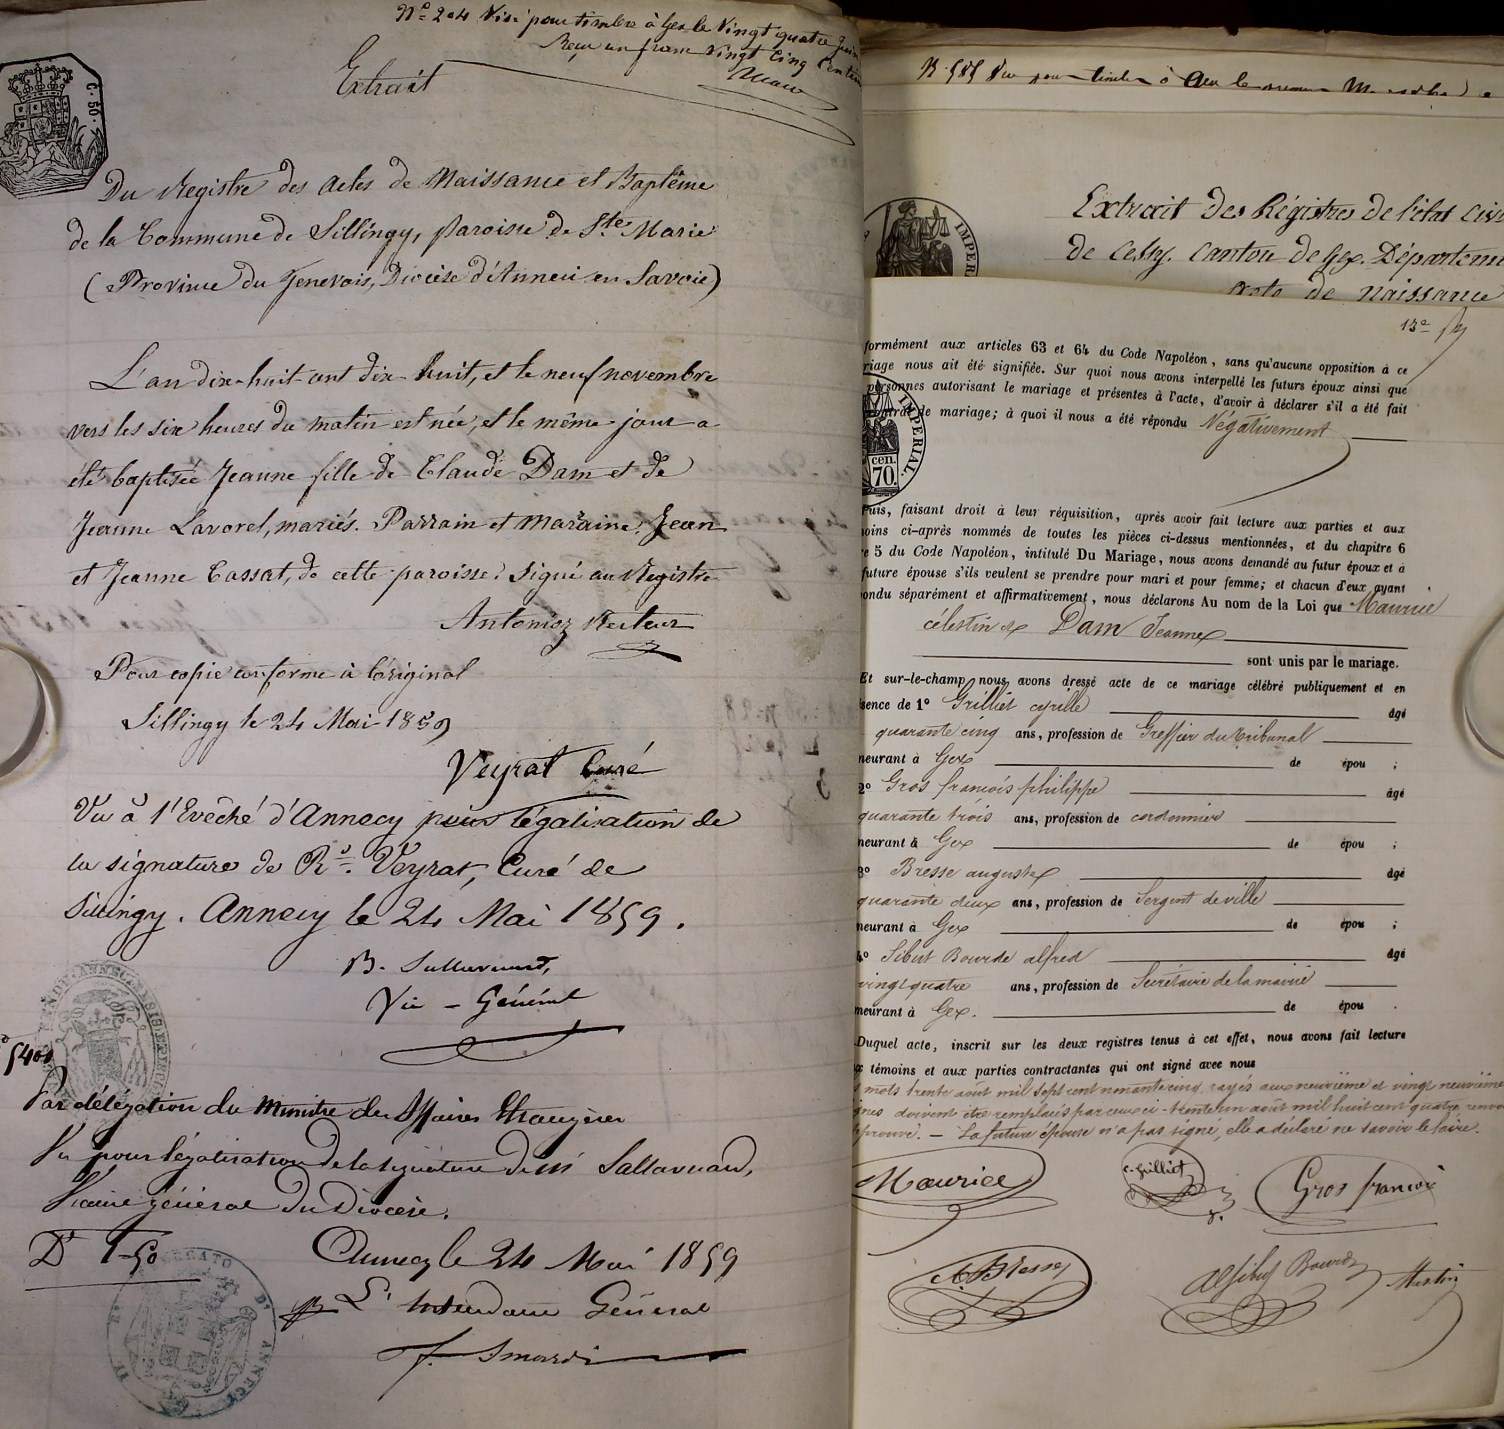 Nº 204 Visé pour timbre à Gex le Vingt quatre Juin
Reçu un franc vingt cinq centim
Extrait
C. 50.
Du Registre des actes de Naissance et Baptême
de la Commune de Sillingy, paroisse de Ste Marie
(Province du Genevois, Diocèse d'Anneci en Savoie)
L'an dix-huit-cent dix-huit, et le neuf novembre
vers les six heures du matin est née, et le même jour a
été baptisée Jeanne fille de Claude Dam et de
Jeanne Lavorel, mariés. Parrain et Maraine Jean
et Jeanne Cassat, de cette paroisse. Signé au Registre
Antonioz Recteur
Pour copie conforme à l'original
Sillingy le 24 Mai 1859
Veyrat Curé
Vu à l'Evêché d'Annecy pour légalisation de
la signature de Rd. Veyrat, Curé de
Sillingy. Annecy le 24 Mai 1859.
Vic - Général
5400
Par délégation du Ministre des Affaires Etrangères
Vu pour légalisation de la signature de M
Vicaire général du Diocèse.
Dt 1-50
Annecy le 24 Mai 1859
L'Intendant Général
Vu pour timbre à Gex le
Extrait des Régistres de l'état civ
de Cessy. Canton de Gex. Département
acte de naissance
IMPER
13e
formément aux articles 63 et 64 du Code Napoléon, sans qu'aucune opposition à ce
riage nous ait été signifiée. Sur quoi nous avons interpellé les futurs époux ainsi que
personnes autorisant le mariage et présentes à l'acte, d'avoir à déclarer s'il a été fait
contrat de mariage; à quoi il nous a été répondu Négativement
IMPERIAL.
cen.
70.
Puis, faisant droit à leur réquisition, après avoir fait lecture aux parties et aux
oins ci-après nommés de toutes les pièces ci-dessus mentionnées, et du chapitre 6
e 5 du Code Napoléon, intitulé Du Mariage, nous avons demandé au futur époux et à
future épouse s'ils veulent se prendre pour mari et pour femme; et chacun d'eux ayant
ondu séparément et affirmativement, nous déclarons Au nom de la Loi que Maurice
célestin et Dam Jeanne
sont unis par le mariage.
Et sur-le-champ nous avons dressé acte de ce mariage célébré publiquement et en
sence de 1º Grilliet cyrille âgé
quarante cinq ans, profession de Greffier du tribunal
meurant à Gex de épou ;
2º Gros françois philippe âgé
quarante trois ans, profession de cordonnier
meurant à Gex de épou ;
3º Bresse auguste âgé
quarante deux ans, profession de Sergent de ville
meurant à Gex de épou ;
4º Sibut Bourde alfred âgé
vingt quatre ans, profession de Secrétaire de la mairie
meurant à Gex. de épou .
Duquel acte, inscrit sur les deux registres tenus à cet effet, nous avons fait lecture
x témoins et aux parties contractantes qui ont signé avec nous
s mots trente août mil sept cent nonante cinq rayés aux neuvième et vingt neuvième
gnes doivent être remplacés par ceux ci: trente un août mil huit cent quatre renvoi
approuvé. — La future épouse n'a pas signé, elle a déclaré ne savoir le faire.
Maurice
C. Grilliet
Gros françois
A. Bresse
Alf Sibut Bourde